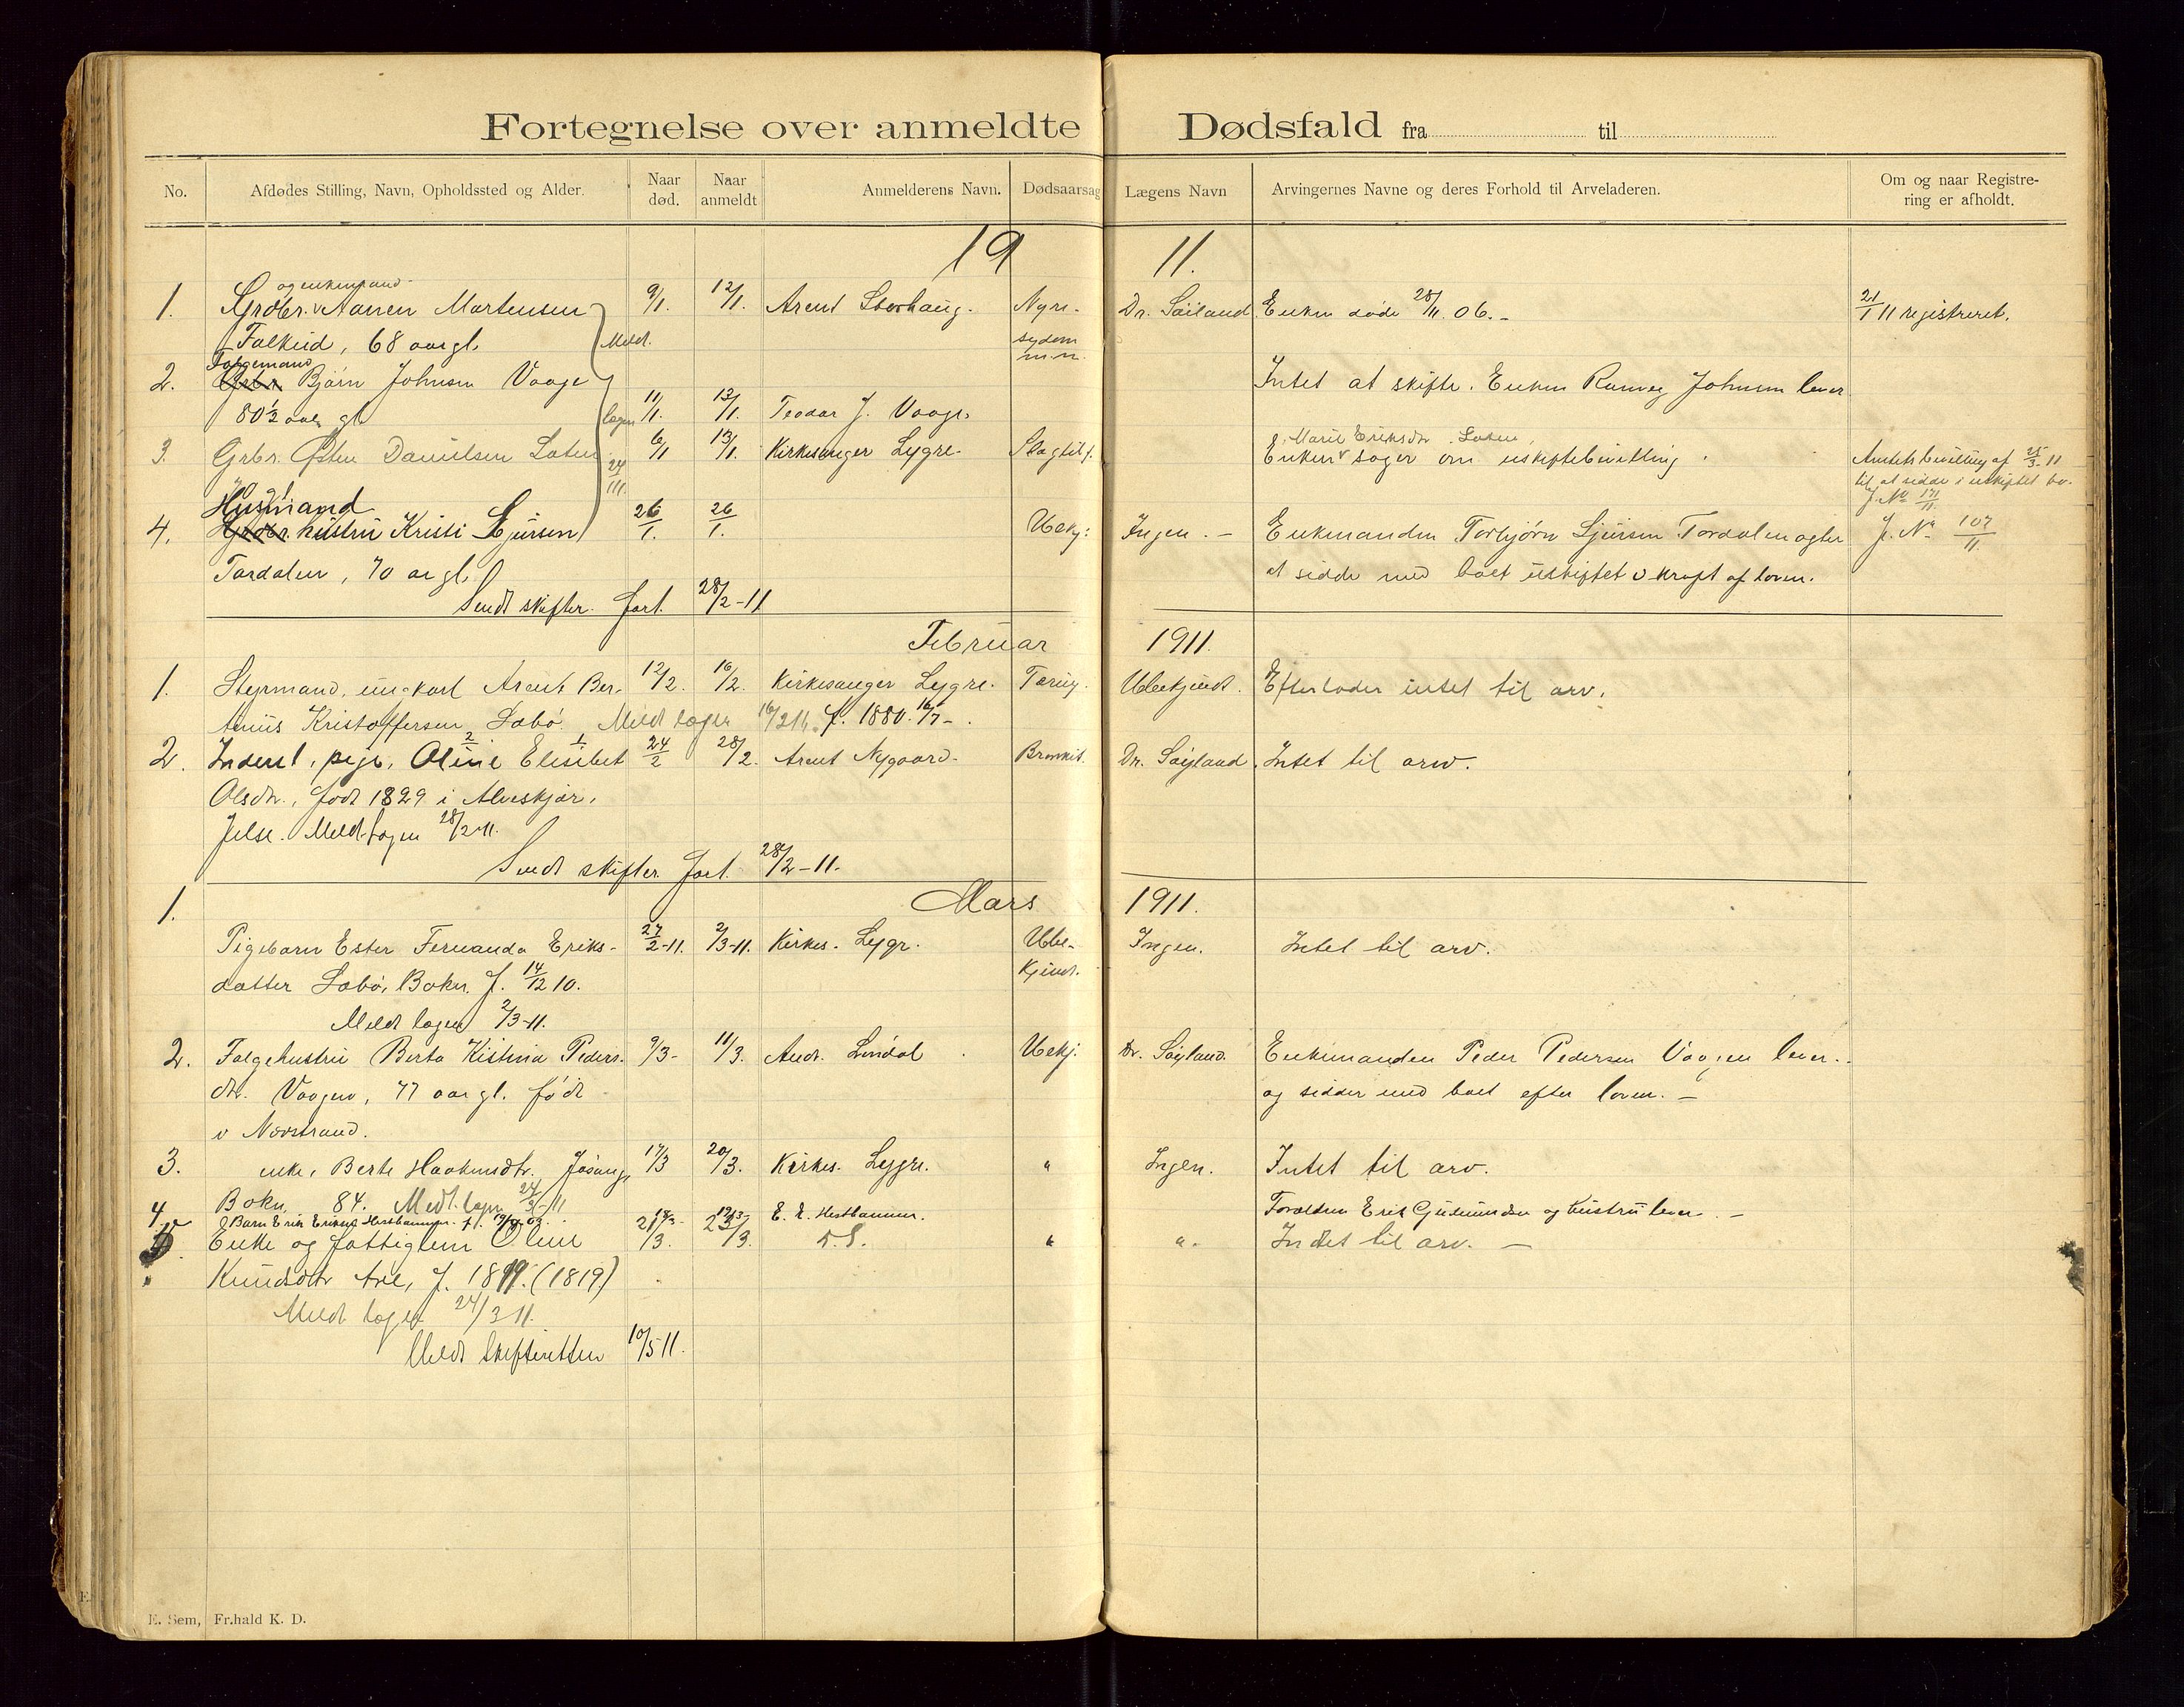 Fortegnelse over anmeldte Dødsfald fra til
No. Afdødes Stilling, Navn, Opholdssted og Alder. Naar død. Naar anmeldt Anmelderens Navn. Dødsaarsag Lægens Navn Arvingernes Navne og deres Forhold til Arveladeren. Om og naar Registrering er afholdt.
1911.
og enkemand
1. Grdbr. Aanen Martensen 9/1. 12/1. Arent Storhaug. Nyre- Dr. Søiland Enken døde 28/11. 06. 21/1 11 registreret.
Falkeid, 68 aar gl. Meldt. sydom m.m.
Folgemand
2. Grbr. Bjørn Johnsen Vaage Intet at skifte. Enken Ranveg Johnsen lever
80½ aar gl. lagen 11/1. 13/1. Teodor J. Vaage.
Marit Eriksdtr. Loten.
3. Grbr. Østen Danielsen Loten 6/1 13/1. Kirkesanger Lygre. Slagtilf. Enken søger om uskiftebevilling. Amtets bevilling af 25/3-11
til at sidde i uskiftet bo.
J. No 171/11.
Husmand
4. Grdbr. hustru Kristi Sjursen 26/1. 26/1. Ubekj: Ingen. - Enkemanden Torbjørn Sjursen Tordalen agter J. No 107/11.
Tordalen, 70 ar gl. at sidde med boet uskiftet i kraft af loven.
Sendt skifter. fort. 28/2-11
Februar 1911.
1. Styrmand, ungkarl Arent Ber- 12/2. 16/2. Kirkesanger Lygre. Tæring. Ubekjendt. Efterlader intet til arv.
tinius Kristoffersen Løbø. Meldt lagen 16/2 11. f. 1880. 16/7-.
2. Inderst, pige, Oline Elisebet 24/2 28/2. Arent Nygaard. Bronkit. Dr. Søyland. Intet til arv.
Olsdtr., født 1829 i Alveskjær,
Jelse. Meldt lagen 28/2-11.
Sendt skifter. fort. 28/2-11.
1. Mars 1911.
Pigebarn Ester Fernanda Eriks- 27/2-11. 2/3-11. Kirkes. Lygr. Ube- Ingen. Intet til arv.
datter Løbø, Bokn. f. 14/12 10. kjendt.
Meldt lagen 2/3-11.
2. Folgehustru Berta Kistina Peders- 9/3- 11/3. Andr. Lindal Ubekj. Dr. Søyland. Enkemanden Peder Pedersen Vaagen lever.
dtr. Vaagen, 77 aar gl. født og sidder med boet efter loven. -
i Nerstrand.
3. enke, Berte Haakonsdtr. Jøsang, 17/3 20/3. Kirkes. Lygre. " Ingen. Intet til arv.
Bokn, 84. Meldt lagen 24/3-11
4. Barn Erik Eriksen Hesthammer. f. E. E. Hesthammer. Forældren Erik Gudmundsen og hustru lever. -
5. Enke og fattiglem Oline 21/3. 23/3. D. S. " " . Intet til arv. -
Knudsdtr Are, f. 1819. (1819)
Meldt lagen 24/3 11.
Meldt skifteretten 10/5 11.
E. Sem, Fr.hald K. D.